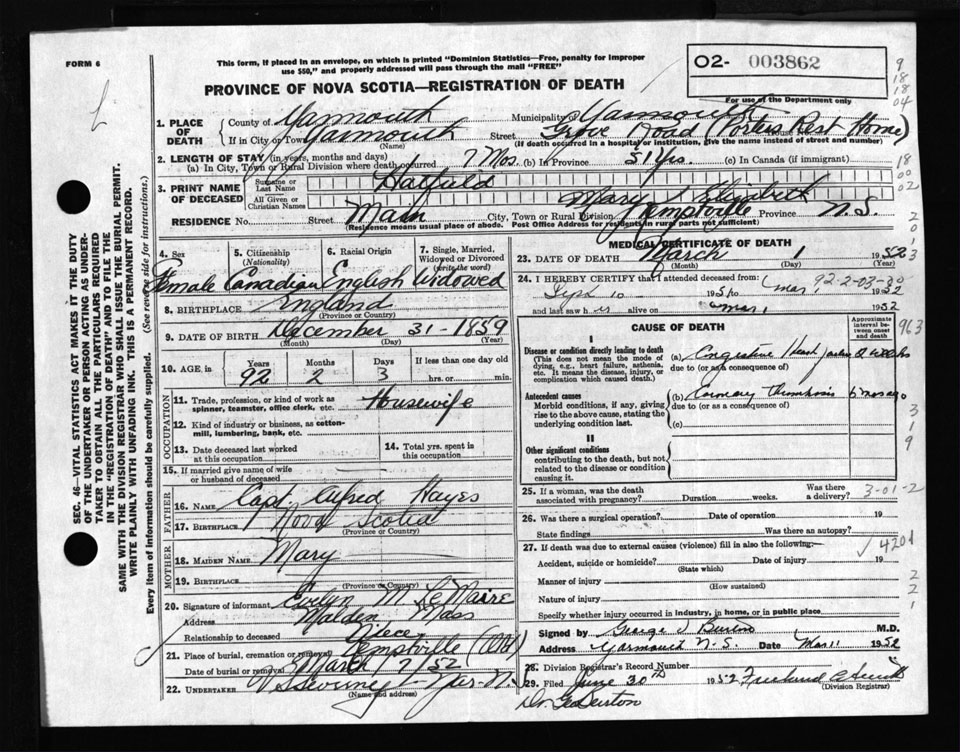 FORM 6
This form, if placed in an envelope, on which is printed "Dominion Statistics—Free, penalty for improper
use $50," and properly addressed will pass through the mail "FREE"
O2- 003862
For use of the Department only
9 18 18 04
PROVINCE OF NOVA SCOTIA—REGISTRATION OF DEATH
1. PLACE OF DEATH
County of Yarmouth Municipality of Yarmouth
If in City or Town Yarmouth Street Grove Road (Porters Rest Home)
(Name) House No.
(If death occurred in a hospital or institution, give name instead of street and number)
2. LENGTH OF STAY (in years, months and days)
(a) In City, Town or Rural Division where death occurred 7 Mos. (b) In Province 51 Yrs. (c) In Canada (if immigrant)
18 00 02
3. PRINT NAME OF DECEASED
Surname or Last Name Hatfield
All Given or Christian Names Mary Elizabeth
RESIDENCE No. Street Main City, Town or Rural Division Kemptville Province N.S.
(Residence means usual place of abode. Post Office Address for residents in rural parts not sufficient)
4. Sex Female
5. Citizenship (Nationality) Canadian
6. Racial Origin English
7. Single, Married, Widowed or Divorced (write the word) Widowed
8. BIRTHPLACE England
(Province or Country)
9. DATE OF BIRTH December 31 - 1859
(Month) (Day) (Year)
10. AGE, in Years 92 Months 2 Days 3 If less than one day old
hrs. or min.
OCCUPATION
11. Trade, profession, or kind of work as spinner, teamster, office clerk, etc. Housewife
12. Kind of industry or business, as cotton-mill, lumbering, bank, etc.
13. Date deceased last worked at this occupation
14. Total yrs. spent in this occupation
15. If married give name of wife or husband of deceased
FATHER
16. NAME Capt. Alfred Hayes
17. BIRTHPLACE Nova Scotia
(Province or Country)
MOTHER
18. MAIDEN NAME Mary
19. BIRTHPLACE
(Province or Country)
20. Signature of informant Evelyn M.
Address Malden Mass
Relationship to deceased Niece
21. Place of burial, cremation or removal Kemptville (Old)
Date of burial or removal March 7/52
22. UNDERTAKER Sweeny
(Name and address)
MEDICAL CERTIFICATE OF DEATH
23. DATE OF DEATH March 1 1952
(Month) (Day) (Year)
24. I HEREBY CERTIFY that I attended deceased from:
Sept 10 1951 to Mar 1 1952
92-2-03-
and last saw h alive on Mar 1 1952
CAUSE OF DEATH
Approximate interval between onset and death
I
Disease or condition directly leading to death
(This does not mean the mode of dying, e.g., heart failure, asthenia, etc. It means the disease, injury, or complication which caused death.)
(a) Congestive Heart
due to (or as a consequence of)
Antecedent causes
Morbid conditions, if any, giving rise to the above cause, stating the underlying condition last.
(b) Coronary Thrombosis 6 mos ago
due to (or as a consequence of)
(c)
II
Other significant conditions
contributing to the death, but not related to the disease or condition causing it.
25. If a woman, was the death associated with pregnancy? Duration weeks. Was there a delivery? 3-01-2
26. Was there a surgical operation? Date of operation 19
State findings Was there an autopsy?
27. If death was due to external causes (violence) fill in also the following:—
✓ 4201
Accident, suicide or homicide? Date of injury 19
(State which)
Manner of injury
(How sustained)
Nature of injury
Specify whether injury occurred in industry, in home, or in public place
Signed by George V Burton M.D.
Address Yarmouth N.S. Date Mar 11 1952
28. Division Registrar's Record Number
29. Filed June 30th 1952
(Division Registrar)
Dr. Geo Burton
SEC. 46—VITAL STATISTICS ACT MAKES IT THE DUTY
OF THE UNDERTAKER OR PERSON ACTING AS UNDER-
TAKER TO OBTAIN ALL THE PARTICULARS REQUIRED
IN THE "REGISTRATION OF DEATH" AND TO FILE THE
SAME WITH THE DIVISION REGISTRAR WHO SHALL ISSUE THE BURIAL PERMIT.
WRITE PLAINLY WITH UNFADING INK. THIS IS A PERMANENT RECORD.
Every item of information should be carefully supplied. (See reverse side for instructions.)